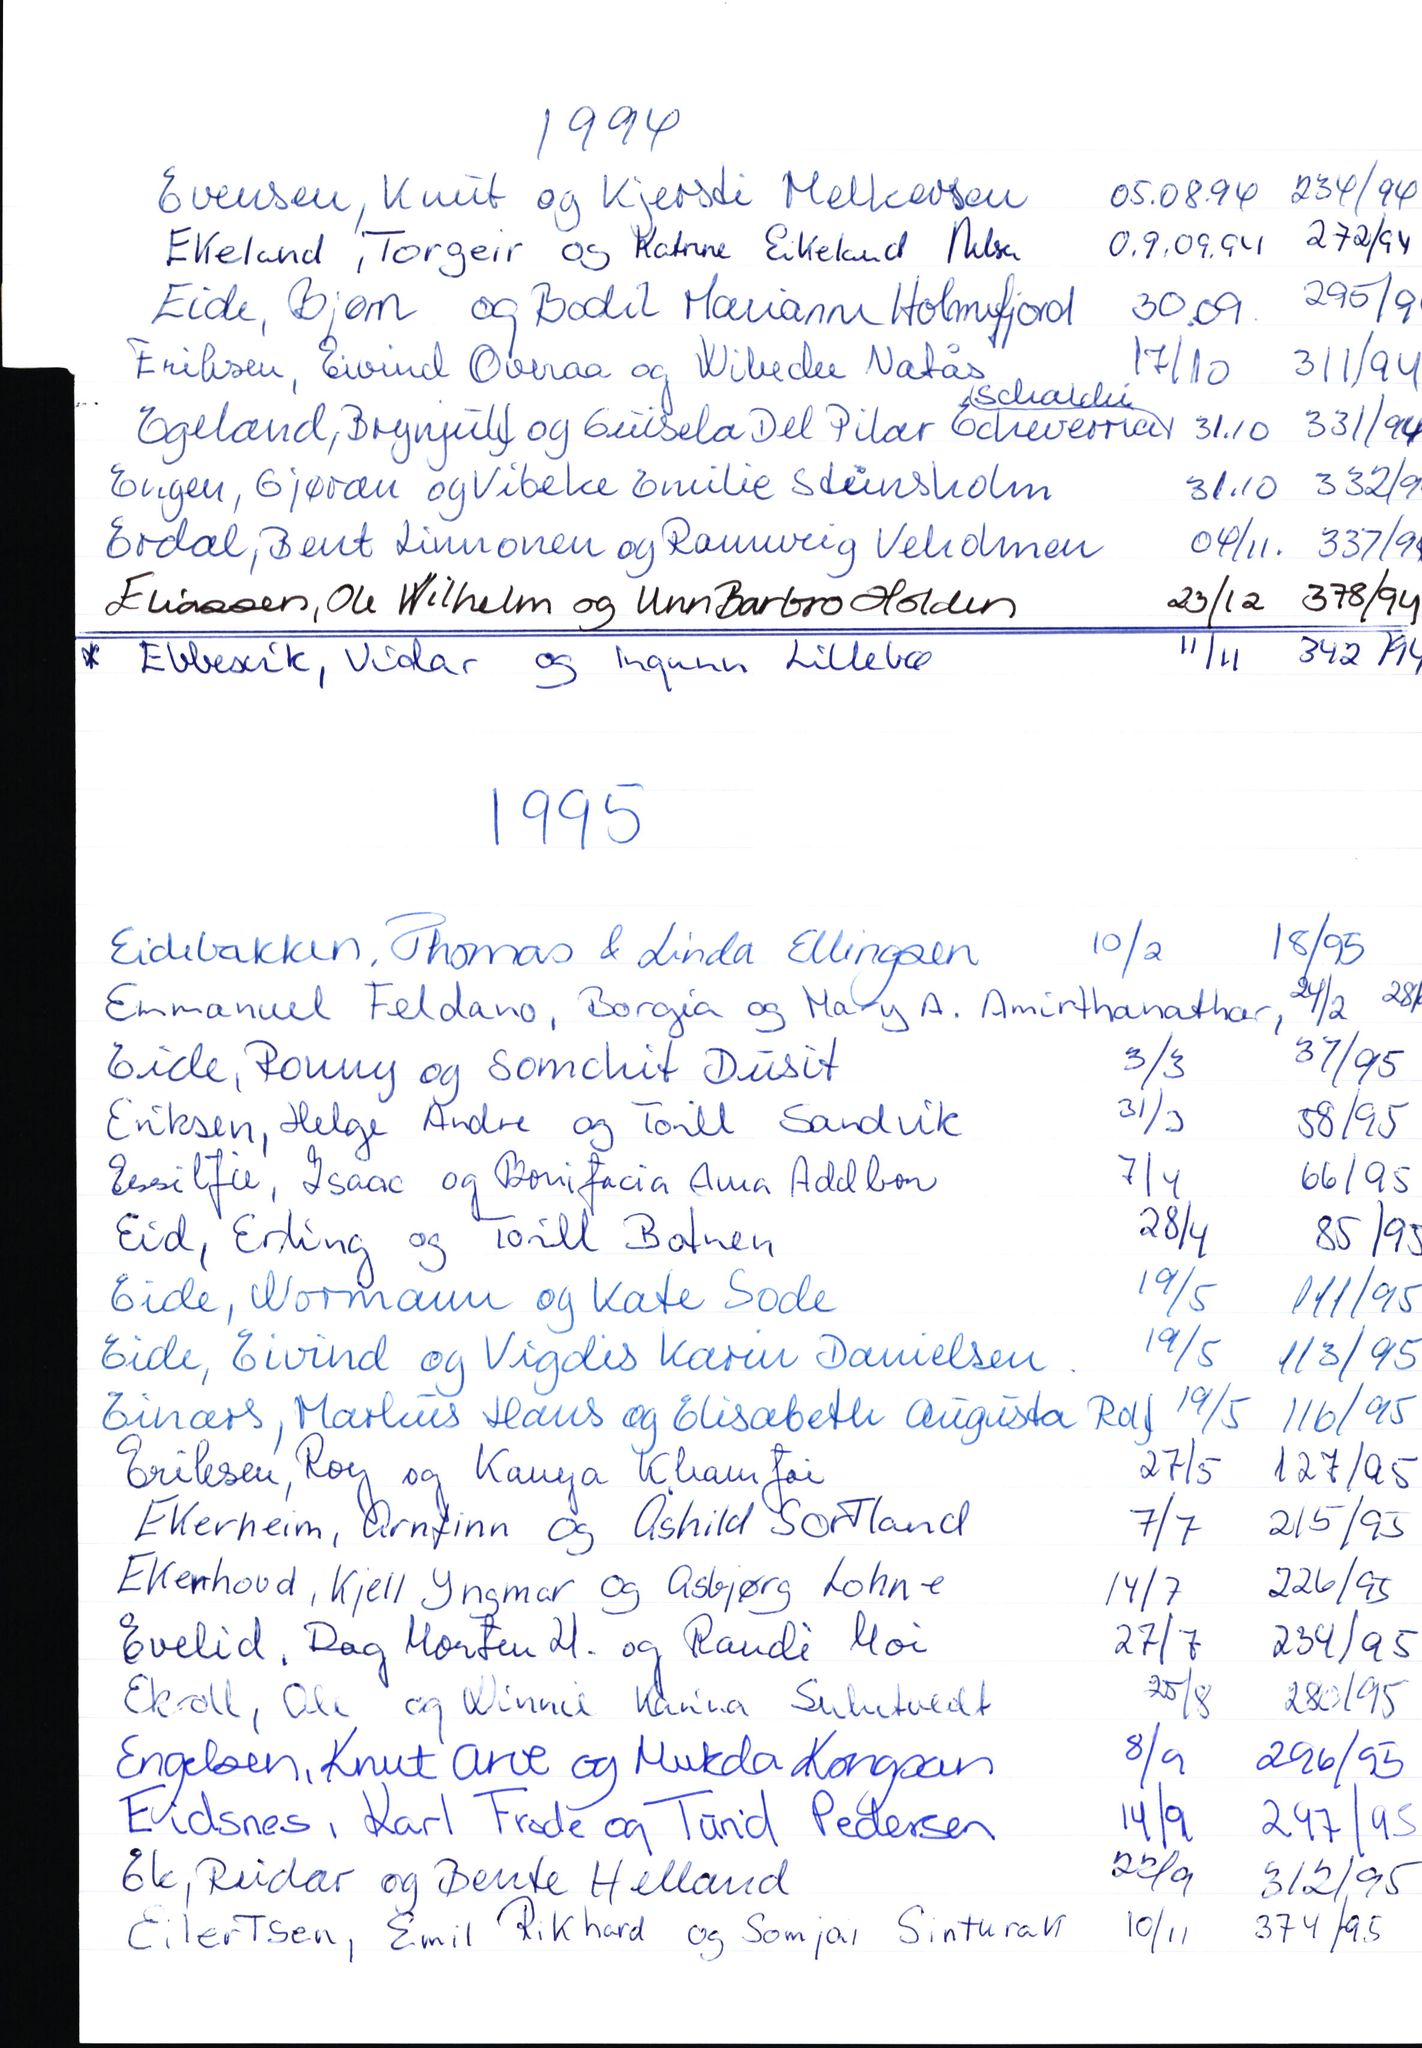 1994
Evensen, Knut og Kjersti Melkevsen 05.08.94 234/94
Ekeland, Torgeir og Katrine Eikeland 0.9.09.94 272/94
Eide, Bjørn og Bodil Marianne Holmefjord 30.09. 295/9
Eriksen, Eivind Overaa og Wibecke Natås 17/10 311/94
Schakki
Egeland, Brynjulf og Guisela Del Pilar Echeverria 31.10 331/94
Engen, Gjøran og Vibeke Emilie Steinsholm 31.10 332/9
Erdal, Bent Linnonen og Rannveig Veholmen 04/11. 337/94
Eliassen, Ole Wilhelm og Unn Barbro Holden 23/12 378/94
* Ebbesvik, Vidar og Ingunn Lillebø 11/11 342/94
1995
Eidebakken, Thomas & Linda Ellingsen 10/2 18/95
Emmanuel Feldano, Borgia og Mary A. Amirthanathar, 24/2 28/
Eide, Ronny og Somchit Dusit 3/3 37/95
Eriksen, Helge Andre og Torill Sandvik 31/3 58/95
Essilfie, Isaac og Bonifacia Ama Addbon 7/4 66/95
Eid, Erling og Torill Botnen 28/4 85/95
Eide, Normann og Kate Sode 19/5 111/95
Eide, Eivind og Vigdis Karin Danielsen. 19/5 113/95
Einars, Markus Hans og Elisabeth Augusta Rolf 19/5 116/95
Eriksen, Roy og Kanya Khamfoi 27/5 127/95
Ekerheim, Arnfinn og Åshild Sortland 7/7 215/95
Ekerhovd, Kjell Yngmar og Asbjørg Lohne 14/7 226/95
Evelid, Dag Morten H. og Randi Moi 27/7 234/95
Ekroll, Ole og Winnie Karina 25/8 280/95
Engelsen, Knut Arve og Mukda Kongsan 8/9 296/95
Evidsnes, Karl Frode og Turid Pedersen 14/9 297/95
Ek, Reidar og Bente Helland 22/9 312/95
Eilertsen, Emil Rikhard og Somjai Sinturak 10/11 374/95